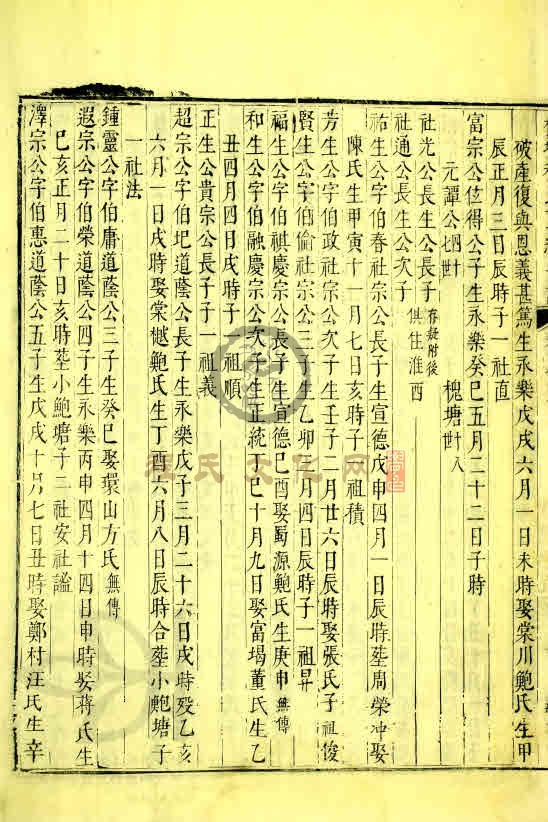 破產復與恩義甚篤生永樂戊戌六月一日未時娶棠川鮑氏生甲
辰正月三日辰時子一社直
富宗公位得公子生永樂癸巳五月二十二日子時
元譚公四世 槐塘世八
社光公長生公長子 存疑附後
社通公長生公次子 俱仕淮西
祐生公字伯春社宗公長子生宣德戊申四月一日辰時塟周榮冲娶
陳氏生甲寅十一月七日亥時子一祖積
芳生公字伯政社宗公次子生壬子二月廿六日辰時娶張氏子一祖俊
賢生公字伯倫社宗公三子生乙卯三月四日辰時子一祖昇
福生公字伯祺慶宗公長子生宣德己酉娶蜀源鮑氏生庚申 無傳
和生公字伯融慶宗公次子生正統丁巳十月九日娶富堨董氏生乙
丑四月四日戌時子一祖順
正生公貴宗公長子子一祖義
超宗公字伯圯道蔭公長子生永樂戊子三月二十六日戌時歿乙亥
六月一日戌時娶棠樾鮑氏生丁酉六月八日辰時合塟小鮑塘子
一社法
鍾靈公字伯庸道蔭公三子生癸巳娶環山方氏 無傳
遐宗公字伯榮道蔭公四子生永樂丙申四月十四日申時娶蔣氏生
己亥正月二十日亥時塟小鮑塘子二社安社謐
澤宗公字伯惠道蔭公五子生戊戌十月七日丑時娶鄭村汪氏生辛